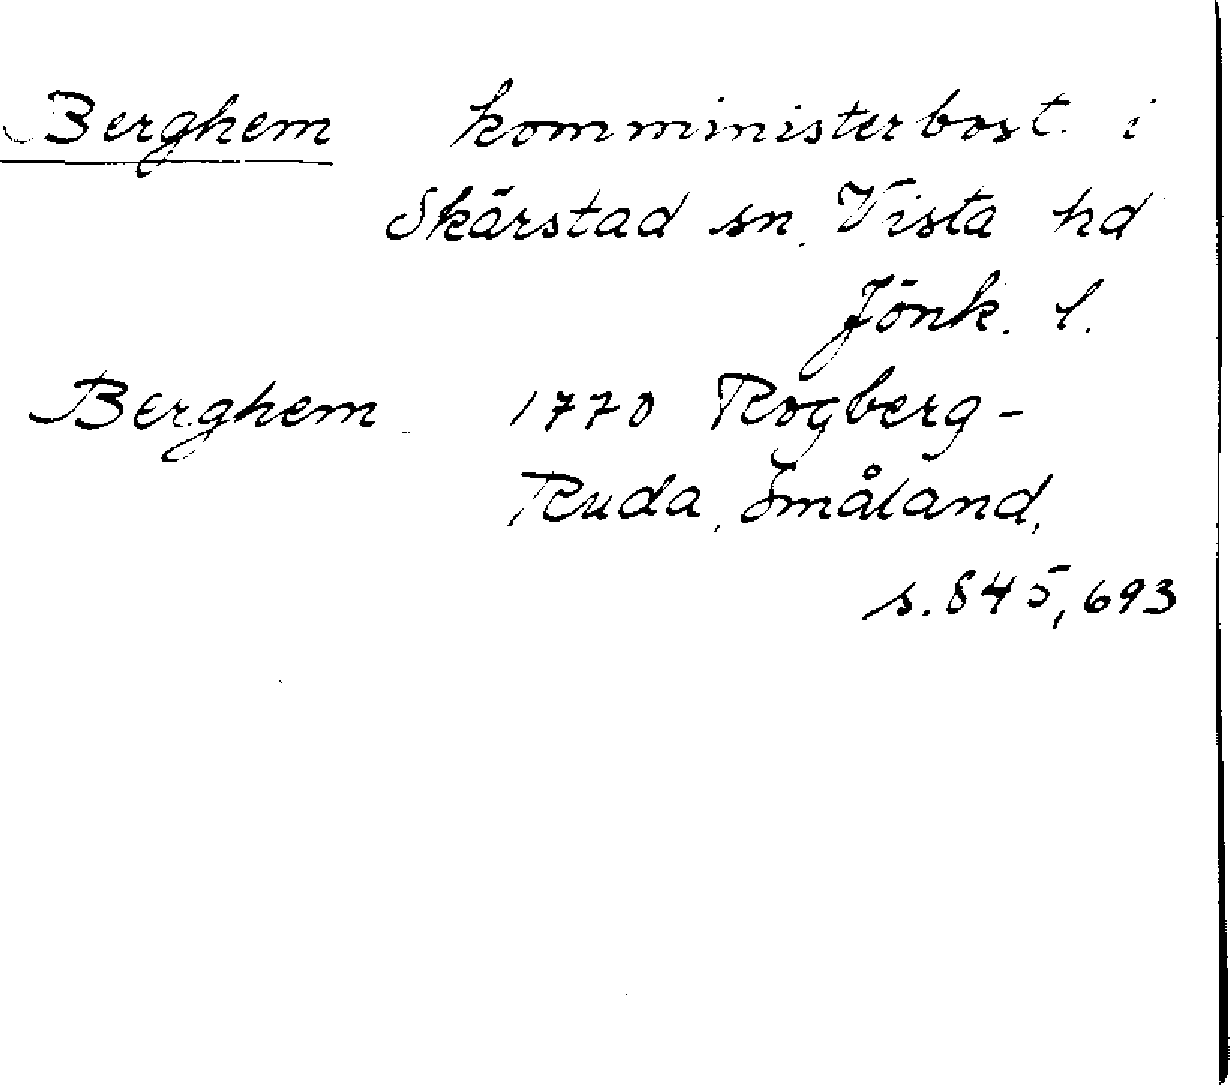 Berghem komministerbost. i
Skärstad sn. Vista hd
Jönk. l.
Berghem 1770 Rogberg-
Ruda, Småland,
s. 845, 693